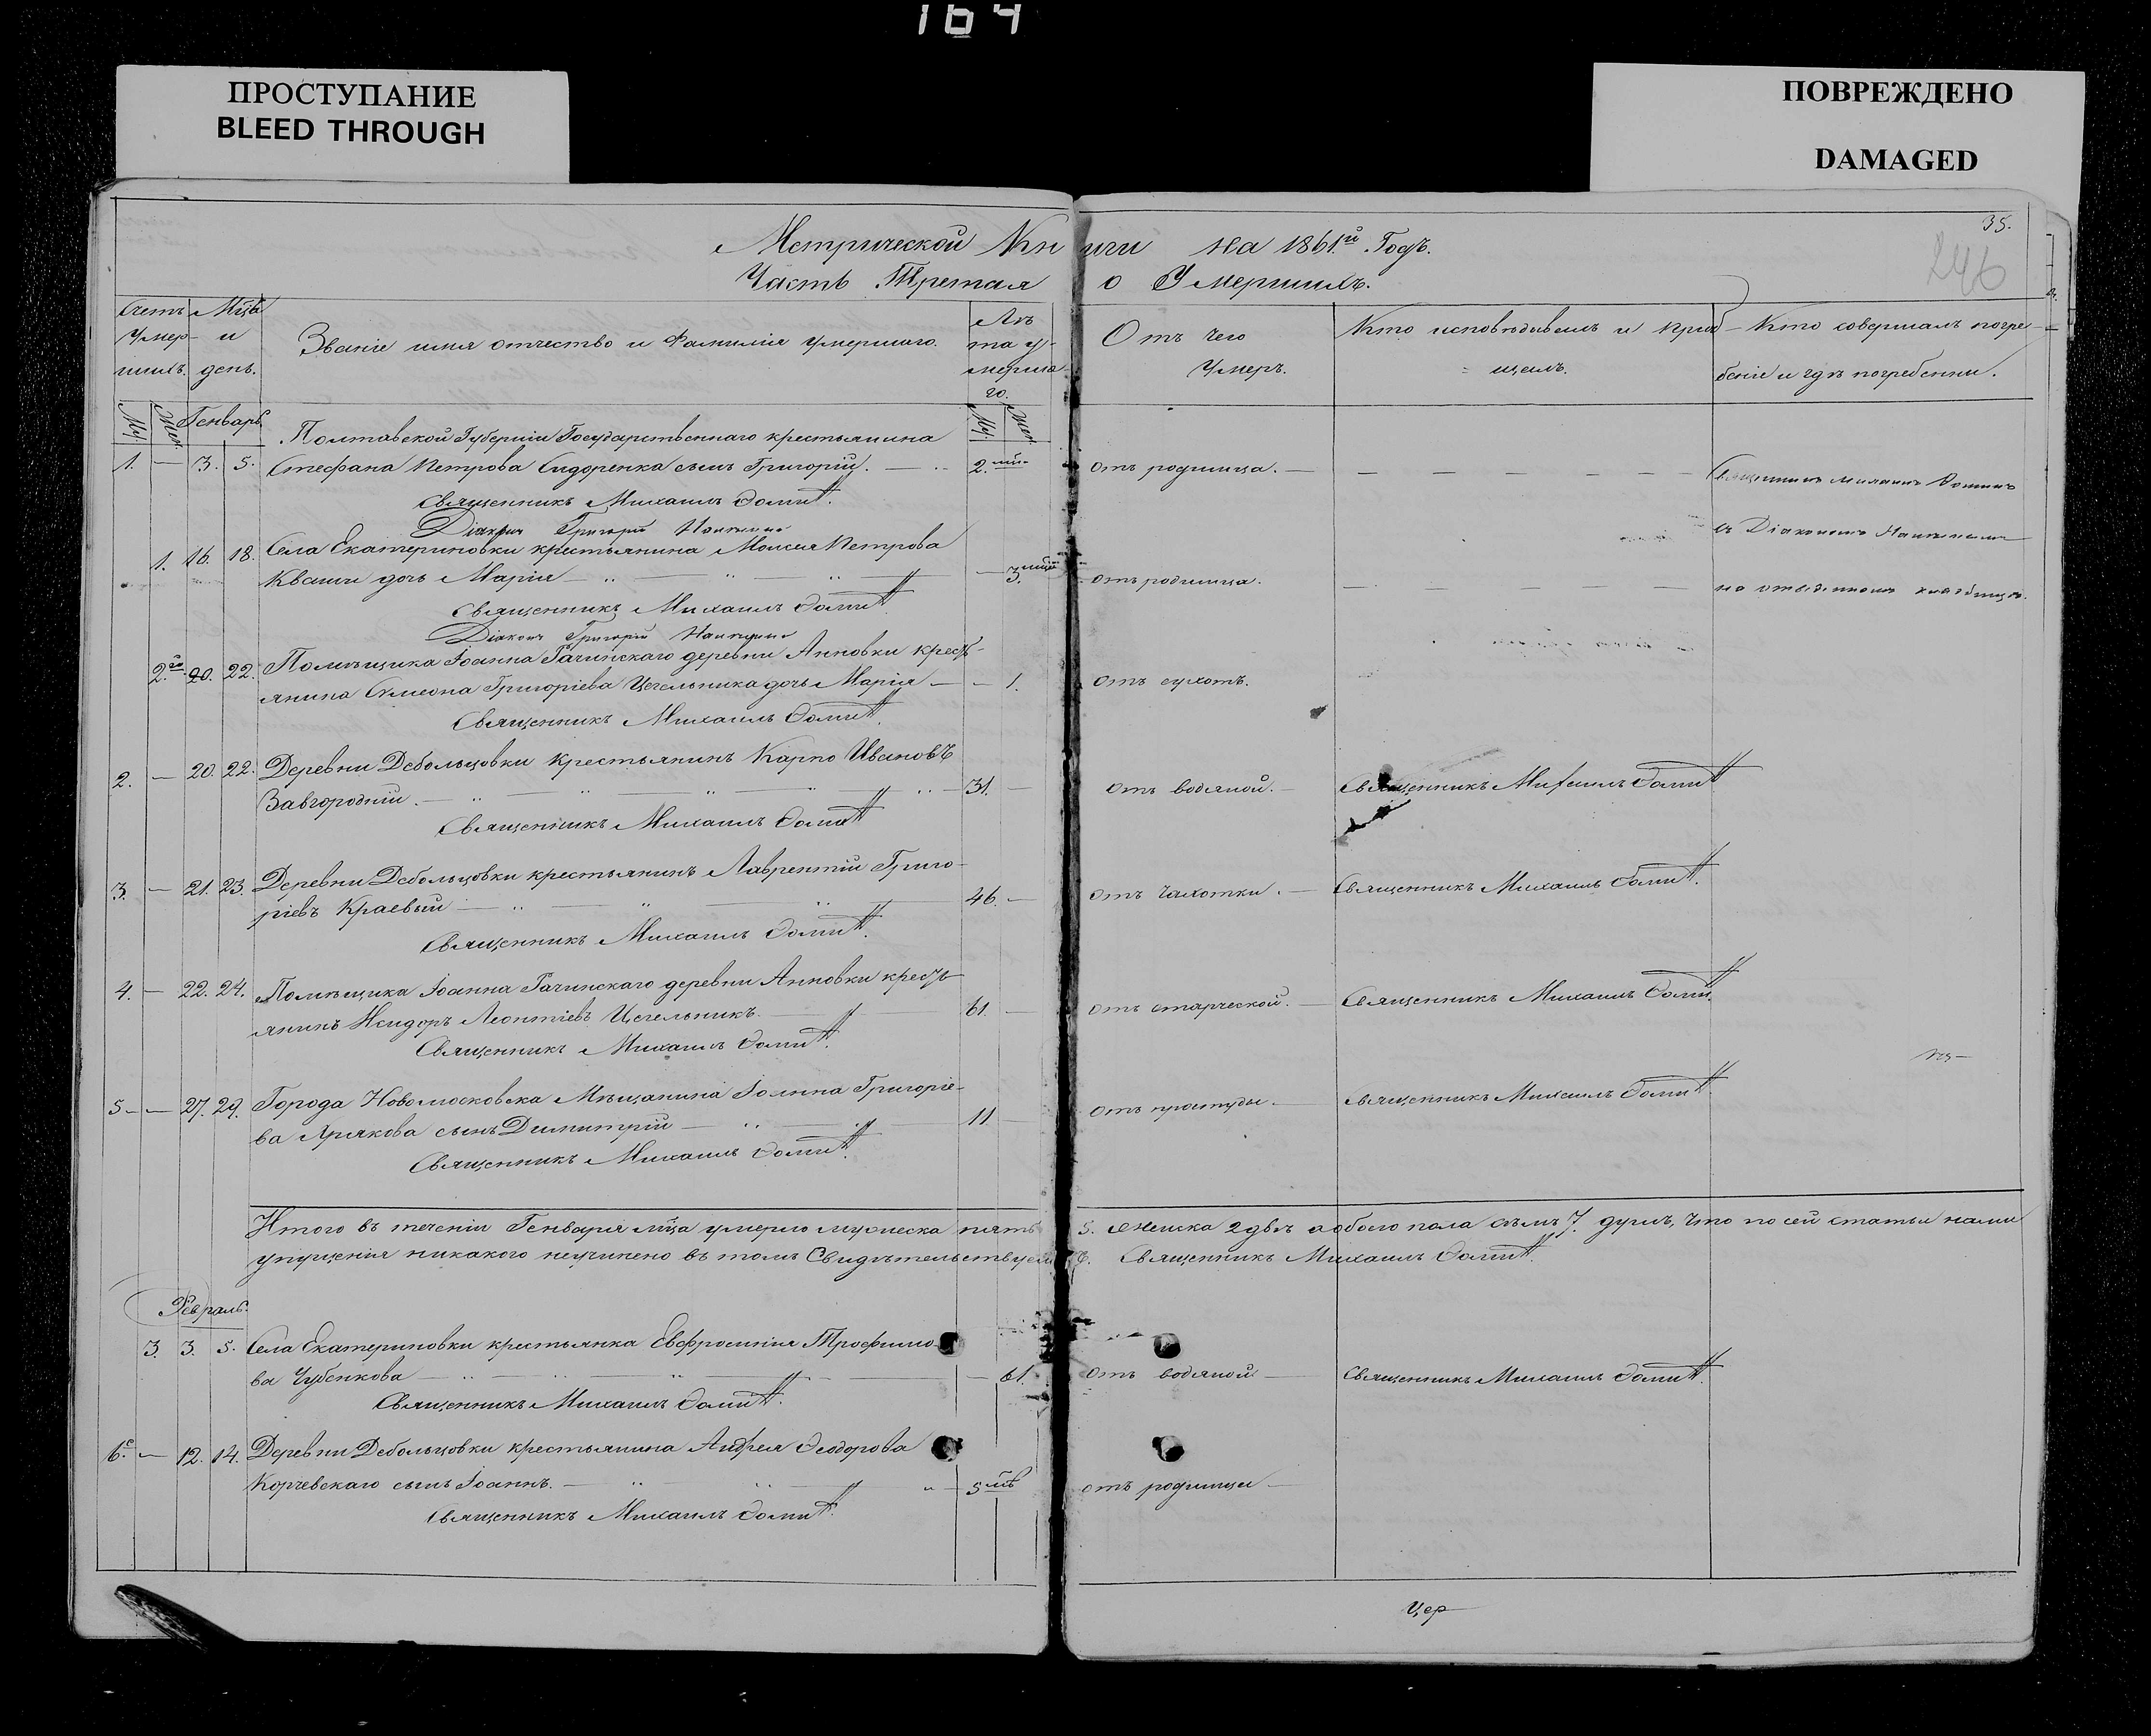 164
ПРОСТУПАНИЕ
BLEED THROUGH
ПОВРЕЖДЕНО
DAMAGED
35.
246
Метрической Книги на 1861.й Годъ.
Часть Третая о Умершихъ.
Счетъ Умер-шихъ.
Мца и день.
Званіе имя отчество и Фамилія умершаго.
Лѣта умершаго.
Отъ чего Умеръ.
Кто исповѣдывалъ и пріобщалъ.
Кто совершалъ погребеніе и гдѣ погребенни.
Му. Жен. Генварь. Му. Жен.
Полтавской Губерніи Государственнаго крестьянина
1. — 3. 5. Стефана Петрова Сидоренка сынъ Григорій. — 2. отъ родимца. — Священникъ Михаилъ
Священникъ Михаилъ
Діаконъ Григорій
съ Діакономъ
1. 16. 18. Села Екатериновки крестьянина Моисея Петрова
Кваши дочь Марія — 3. отъ родимца. — на кладбищѣ.
Священникъ Михаилъ
Діаконъ Григорій
2. 20. 22. Помѣщика Іоанна Рачинскаго деревни Анновки кресть-
янина Симеона Григоріева Цегельника дочь Марія — — 1. отъ сухотъ.
Священникъ Михаилъ
2. — 20. 22. Деревни Дебольцовки крестьянинъ Карпо Ивановъ
Завгородній. — 31. — отъ водяной. — Священникъ Михаилъ
Священникъ Михаилъ
3. — 21. 23. Деревни Дебольцовки крестьянинъ Лаврентій Григо-
ріевъ Краевый — 46. — отъ чахотки. — Священникъ Михаилъ
Священникъ Михаилъ
4. — 22. 24. Помѣщика Іоанна Рачинскаго деревни Анновки кресть-
янинъ Исидоръ Леонтіевъ Цегельникъ. — 61. — отъ старческой. — Священникъ Михаилъ
Священникъ Михаилъ
5 — — 27. 29. Города Новомосковска Мѣщанина Іоанна Григоріе-
ва сынъ Димитрій — 11 отъ простуды — Священникъ Михаилъ
Священникъ Михаилъ
Итого въ теченіи Генваря мца умерло мужеска пять 5. женска 2 двѣ а обоего пола съмъ 7. душъ, что по сей статьи нами
упущенія никакого неучинено въ томъ Свидѣтельствуемъ. Священникъ Михаилъ
Февраль.
3. 3. 5. Села Екатериновки крестьянка Евфросинія Трофимо-
ва Чубенкова — 61. отъ водяной — Священникъ Михаилъ
Священникъ Михаилъ
6. — 12. 14. Деревни Дебольцовки крестьянина Андрея Ѳеодорова
Корчевскаго сынъ Іоаннъ. — 5 отъ родимца —
Священникъ Михаилъ
Цер